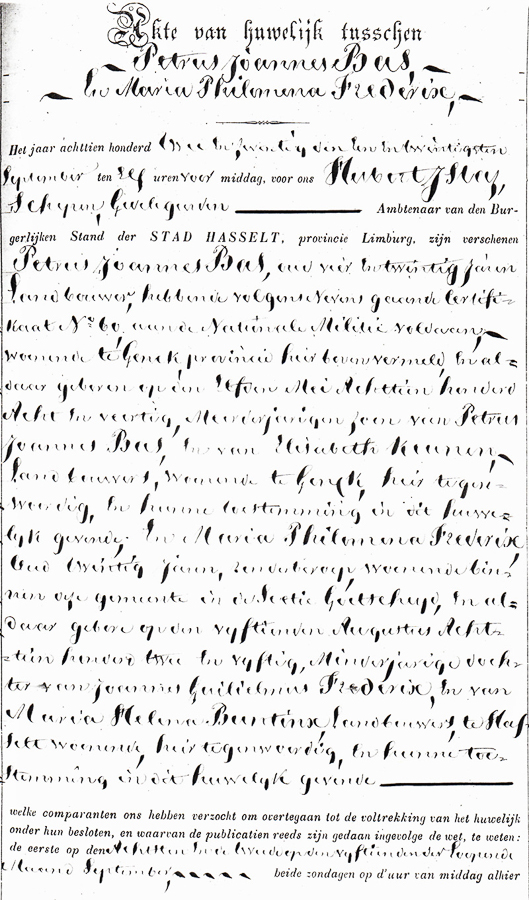 Akte van huwelijk tusschen
Petrus Joannes Bas,
En Maria Philomena Frederix,
Het jaar achttien honderd Twee En Zeventig den Een En twintigsten
September ten Elf uren voor middag, voor ons Hubert
Schepen, Gedelegeerden Ambtenaar van den Bur-
gerlijken Stand der STAD HASSELT, provincie Limburg, zijn verschenen
Petrus Joannes Bas, oud vier En twintig Jaren
Landbouwer, hebbende volgens nevens gaande Certifi-
kaat No 60, aan de Nationale Militie voldaan,
woonende te Genck provincie hier boven vermeld, En al-
daar geboren op den Elfden Mei Achttien honderd
Acht En veertig, Meerderjarigen zoon van Petrus
Joannes Bas, En van Elisabeth Keunen,
Landbouwers, woonende te Genck, hier tegen-
woordig, En hunne toestemming in dit huwe-
lyk gevende; En Maria Philomena Frederix,
Oud twintig Jaren, zonder beroep, woonende bin-
nen dze gemeente in de Sectie Godtscheyd, En al-
daar gebore op den vyftienden Augustus Acht-
tien honderd twee En vyftig, Minderjarige doch-
ter van Joannes Guilielmus Frederix, En van
Maria Helena Buntinx, Landbouwers, te Has-
selt woonende, hier tegenwoordig, En hunne toe-
stemming in dit huwelyk gevende
welke comparanten ons hebben verzocht om overtegaan tot de voltrekking van het huwelijk
onder hun besloten, en waarvan de publicatien reeds zijn gedaan ingevolge de wet, te weten:
de eerste op den Achtsten En de tweede op den vyftienden der Loopende
Maand September, beide zondagen op d'uur van middag alhier